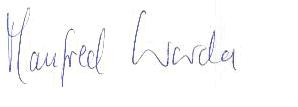 Manfred Warda